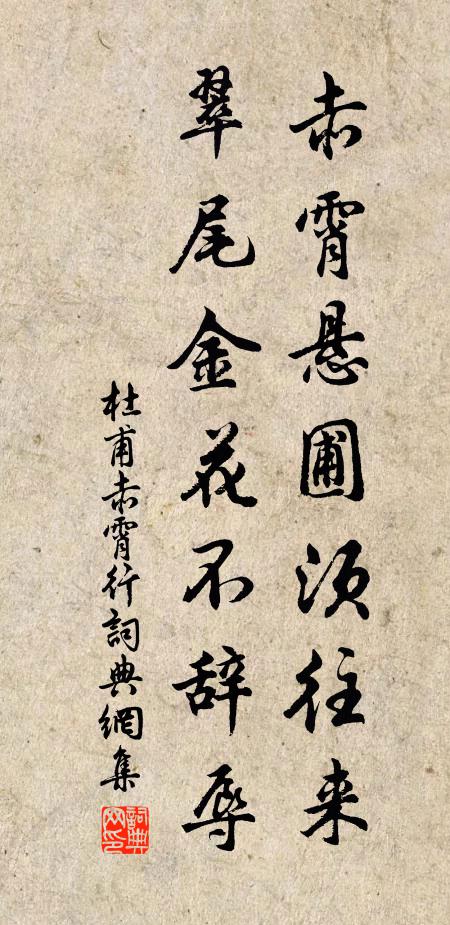 赤霄悬圃须往来
翠尾金花不辞辱
杜甫赤霄行詞典網集
詞典
网印